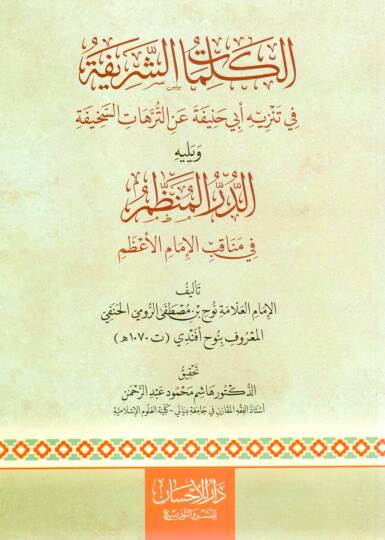 الكَلِمَاتُ الشَّرِيفَةُ
فِي تَنْزِيْهِ أَبِي حَنِيْفَةَ عَنِ التُّرَّهَاتِ السَّخِيفَةِ
وَيَلِيهِ
الدُّرُّ المُنَظَّمُ
فِي مَنَاقِبِ الإِمَامِ الأَعْظَمِ
تَألِيفُ
الإِمَامِ العَلَّامَةِ نُوحِ بْنِ مُصْطَفَى الرُّومِيّ الحَنَفِيّ
المَعْرُوفِ بِنُوح أَفَنْدِي (ت ١٠٧٠هـ)
تَحْقِيقُ
الدُّكْتُورِ هَاشِم مَحْمُود عَبْدِ الرَّحْمٰنِ
أُسْتَاذُ الفِقْهِ المُقَارَنِ فِي جَامِعَةِ دِيَالَى - كُلِّيَّةِ العُلُومِ الإِسْلَامِيَّةِ
دَارُ الإِحْسَانِ
لِلنَّشْرِ وَالتَّوْزِيعِ